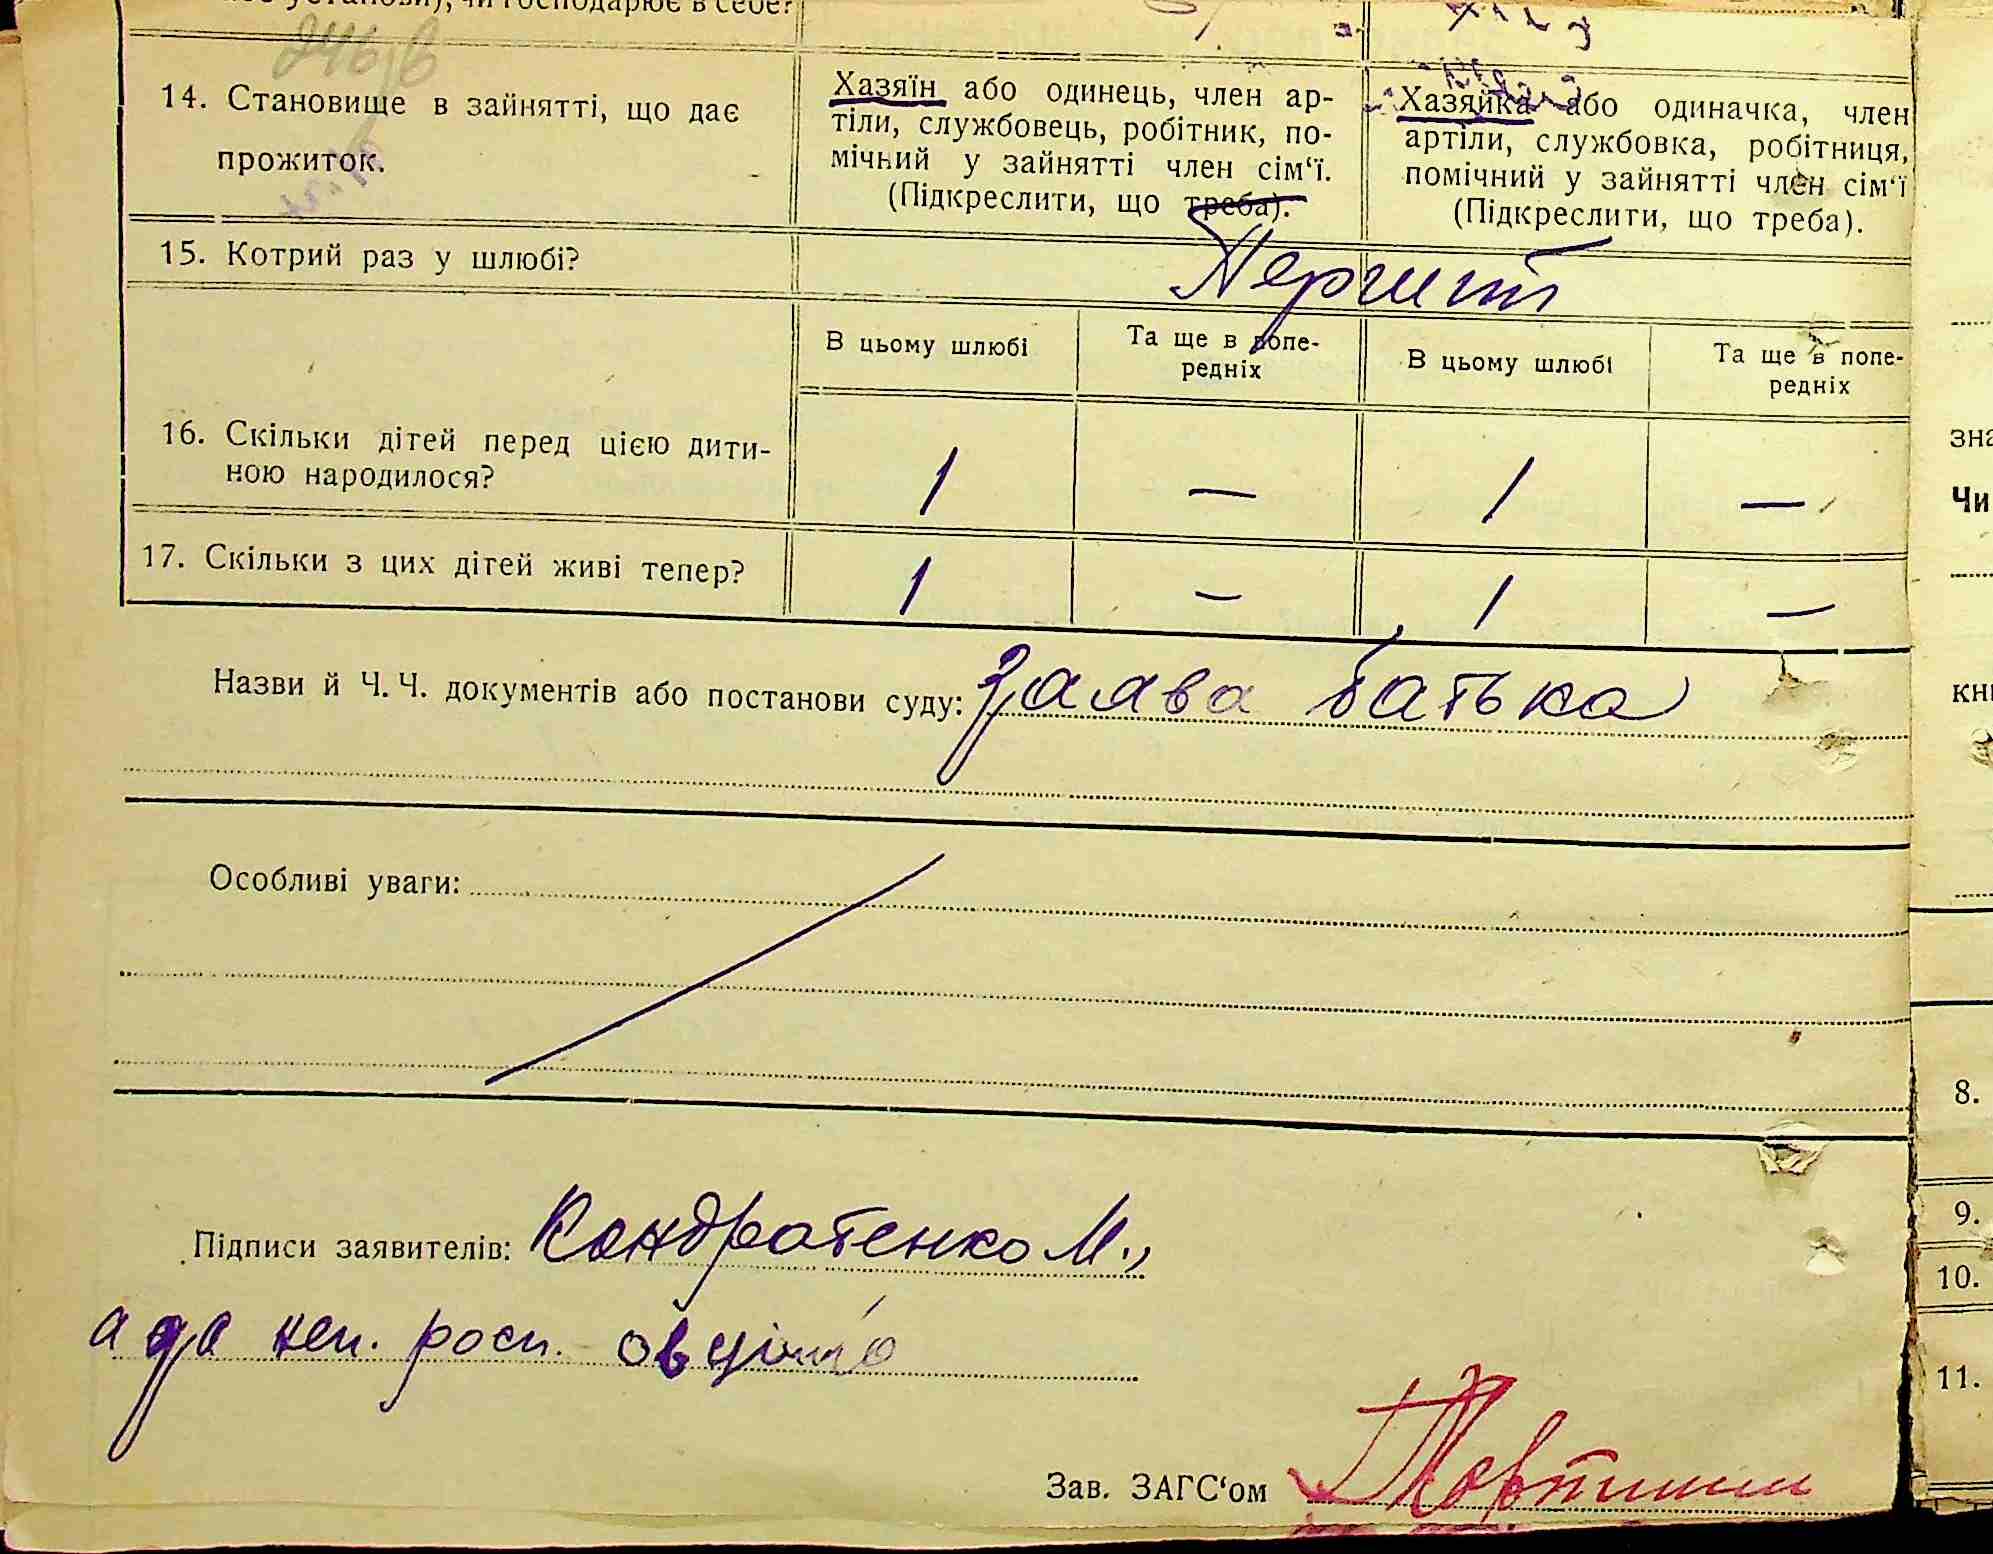 установи), чи господарює в себе?
246
14. Становище в зайнятті, що дає
прожиток.
Хазяїн або одинець, член ар-
тіли, службовець, робітник, по-
мічний у зайнятті член сім‘ї.
(Підкреслити, що треба).
Хазяйка або одиначка, член
артіли, службовка, робітниця,
помічний у зайнятті член сім‘ї
(Підкреслити, що треба).
15. Котрий раз у шлюбі?
Перший
В цьому шлюбі
Та ще в попе-
редніх
В цьому шлюбі
Та ще в попе-
редніх
16. Скільки дітей перед цією дити-
ною народилося?
1 — 1 —
17. Скільки з цих дітей живі тепер?
1 — 1 —
Назви й Ч. Ч. документів або постанови суду: Заява батька
Особливі уваги:
Підписи заявителів: Кондратенко М.,
а за неп. росп.
Зав. ЗАГС‘ом
зна
Чи
кни
8.
9.
10.
11.